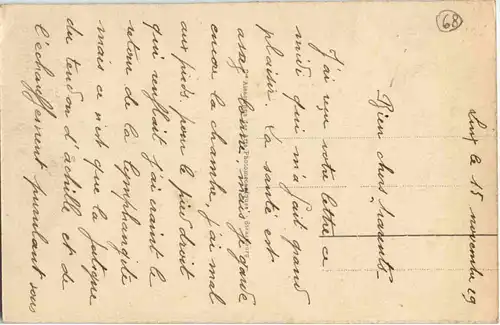 68
le 15 novembre 29
Bien chers Parents
J'ai reçu votre lettre ce
midi qui m'a fait grand
plaisir. La santé est
assez bonne, mais je garde
encore la chambre, j'ai mal
aux pieds pour le pied droit
qui renflait j'ai craint le
retour de la lymphangite
mais ce n'est que la fatigue
du tendon d'achille et de
l'échauffement purulent sous